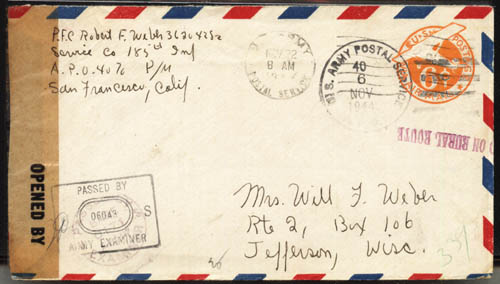 P.F.C. Robert F. Weber
Service Co 185th Inf
A.P.O. 40 % P/M
San Francisco, Calif.
NOV 22
8 AM
POSTAL SERVICE
U.S. ARMY POSTAL SERVICE
40
6
NOV
1944
U.S. POSTAGE
ON RURAL ROUTE
OPENED BY
PASSED BY
06043
S
ARMY EXAMINER
Mrs. Will F. Weber
Rte 2, Box 106
Jefferson, Wisc.